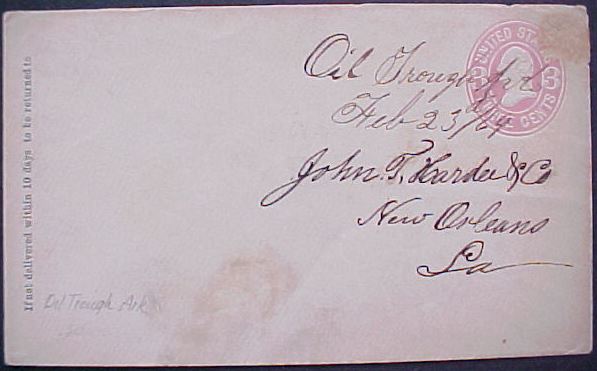 If not delivered within 10 days to be returned to
UNITED STATES
3 3
THREE CENTS
Oil Trough Ark
Feb 23/69
John T. Hardee & Co
New Orleans
La
Oil Trough Ark